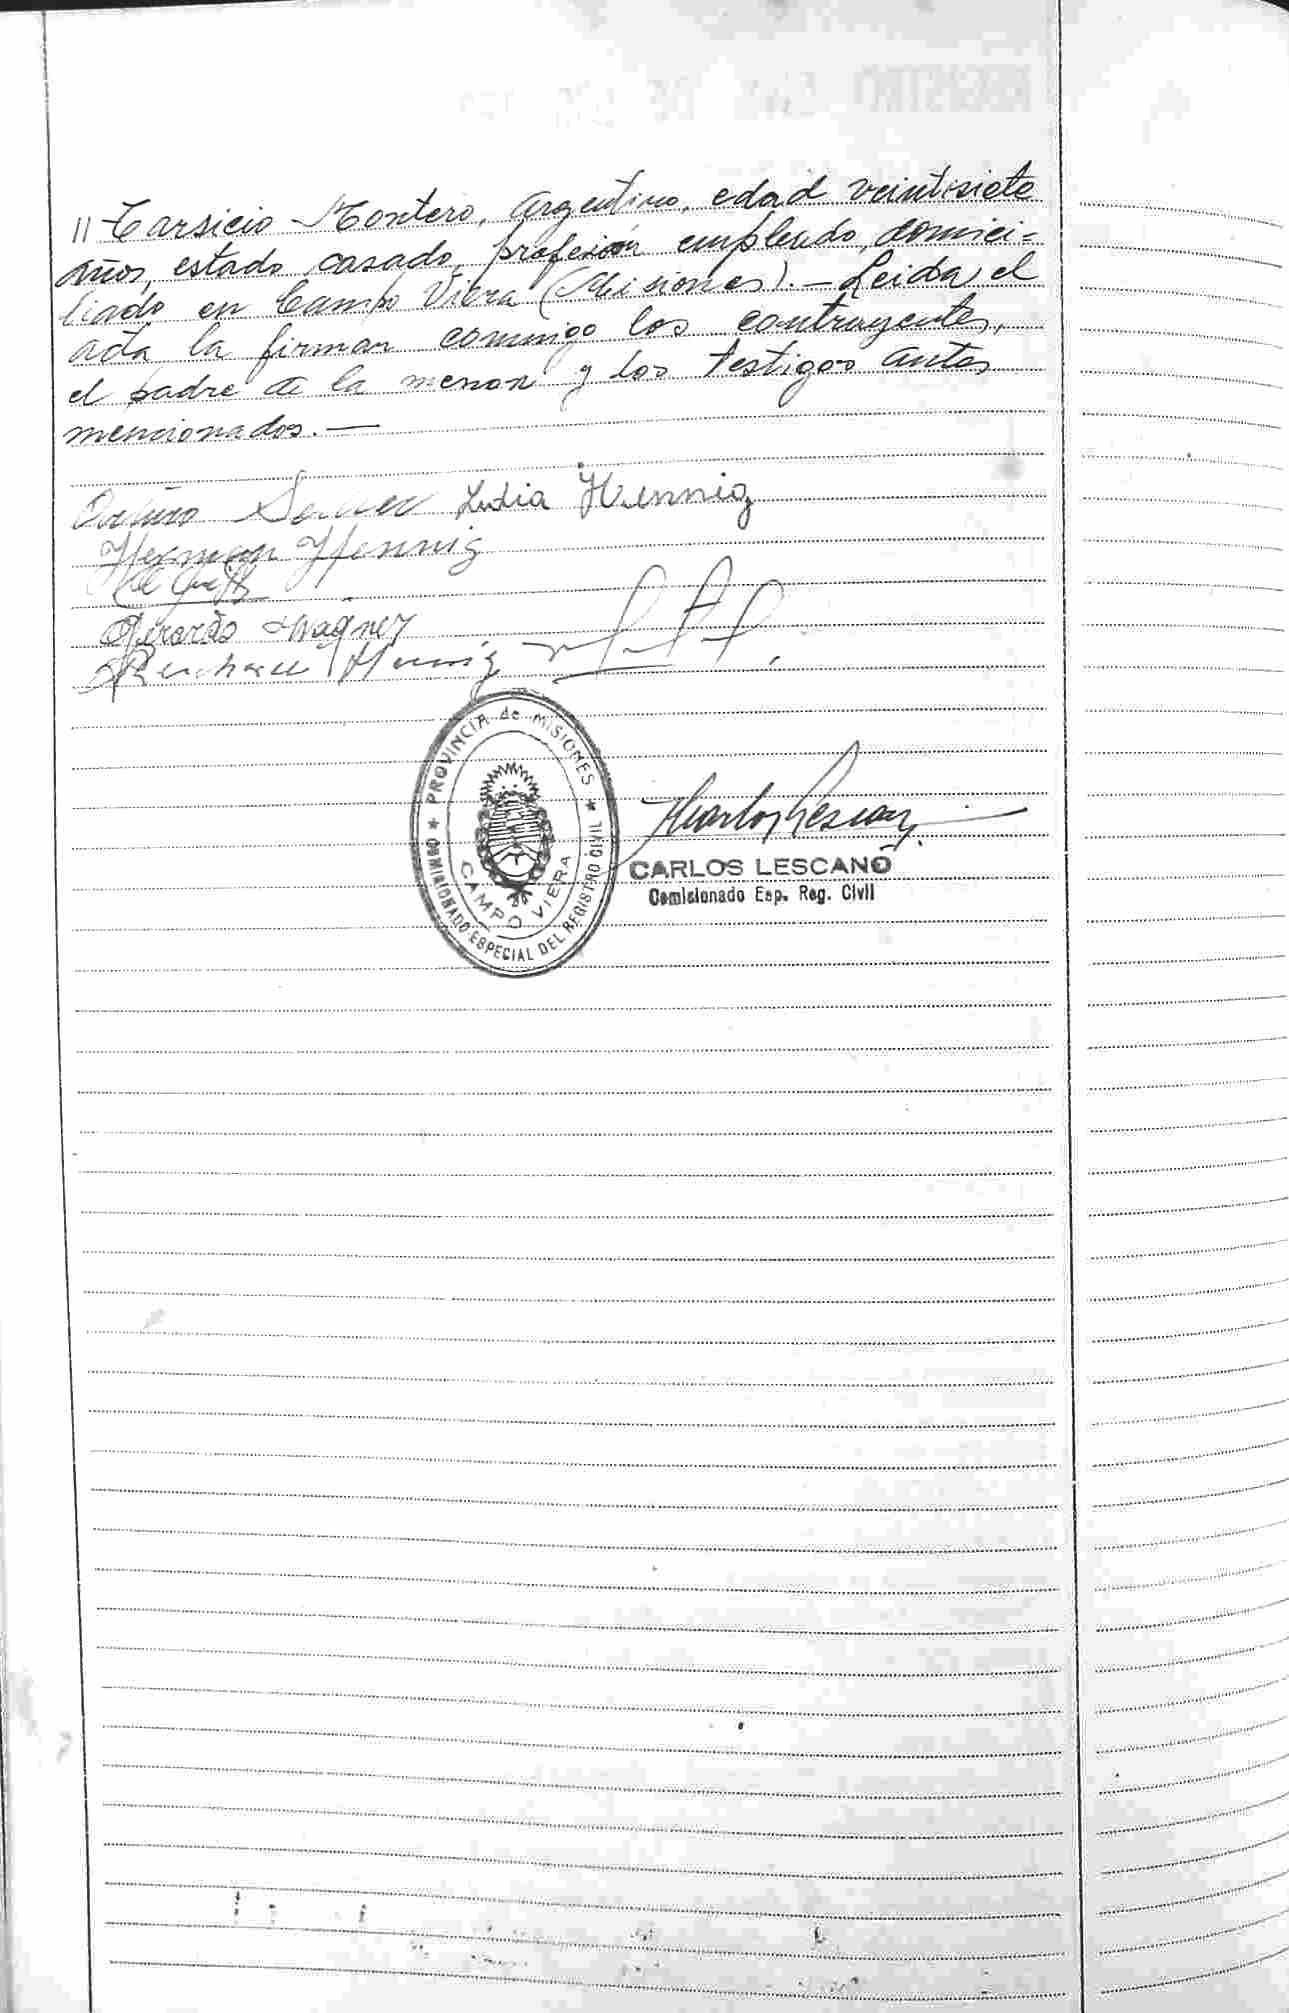 " Tarsicio Montero, Argentino, edad veintisiete
años, estado casado, profesión empleado, domici=
liado en Campo Viera (Misiones).- Leida el
acta la firman conmigo los contrayentes,
el padre de la menor y los testigos antes
mencionados.-
Arturo Lidia Hennig
Herman Hennig
Gerardo Wagner
Hennig
PROVINCIA de MISIONES
COMISIONADO ESPECIAL DEL REGISTRO CIVIL
CAMPO VIERA
Carlos Lescano
CARLOS LESCANO
Comisionado Esp. Reg. Civil